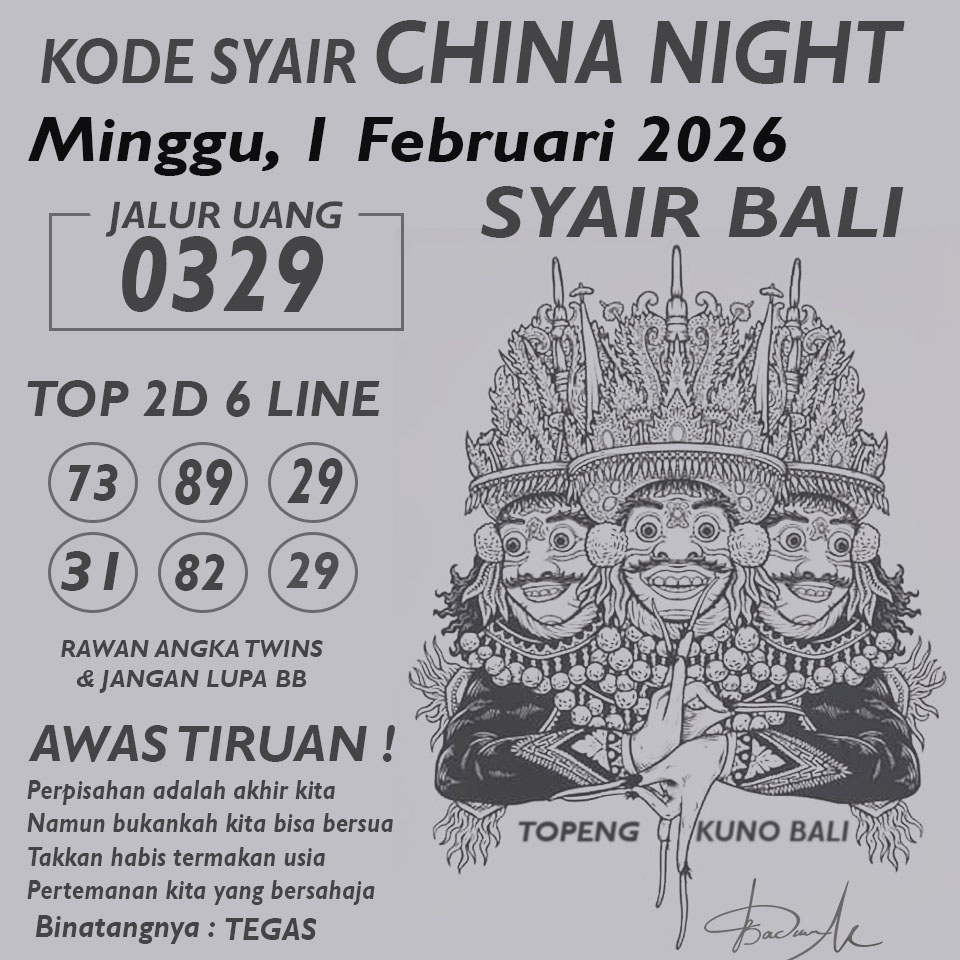 KODE SYAIR CHINA NIGHT
Minggu, 1 Februari 2026
SYAIR BALI
JALUR UANG
0329
TOP 2D 6 LINE
73 89 29
31 82 29
RAWAN ANGKA TWINS
& JANGAN LUPA BB
AWAS TIRUAN !
Perpisahan adalah akhir kita
Namun bukankah kita bisa bersua
Takkan habis termakan usia
Pertemanan kita yang bersahaja
Binatangnya : TEGAS
TOPENG KUNO BALI